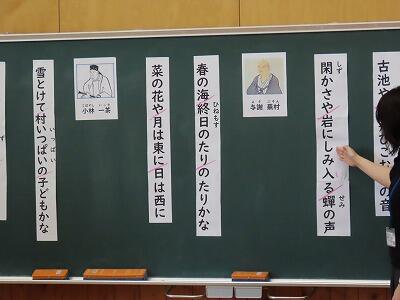 古池や
の音
閑かさや岩にしみ入る蟬の声
しず
せみ
よさ ぶそん
与謝 蕪村
春の海終日のたりのたりかな
ひねもす
菜の花や月は東に日は西に
こばやし いっさ
小林 一茶
雪とけて村いっぱいの子どもかな
いっぱい
ず